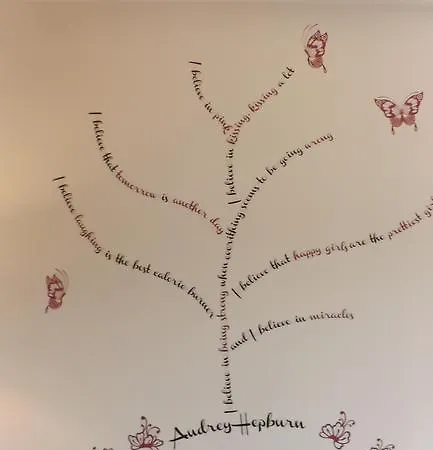 I believe in pink
I believe in kissing, kissing a lot
I believe that tomorrow is another day
I believe in being strong when everything seems to be going wrong
I believe laughing is the best calorie burner
I believe that happy girls are the prettiest
and I believe in miracles
Audrey Hepburn